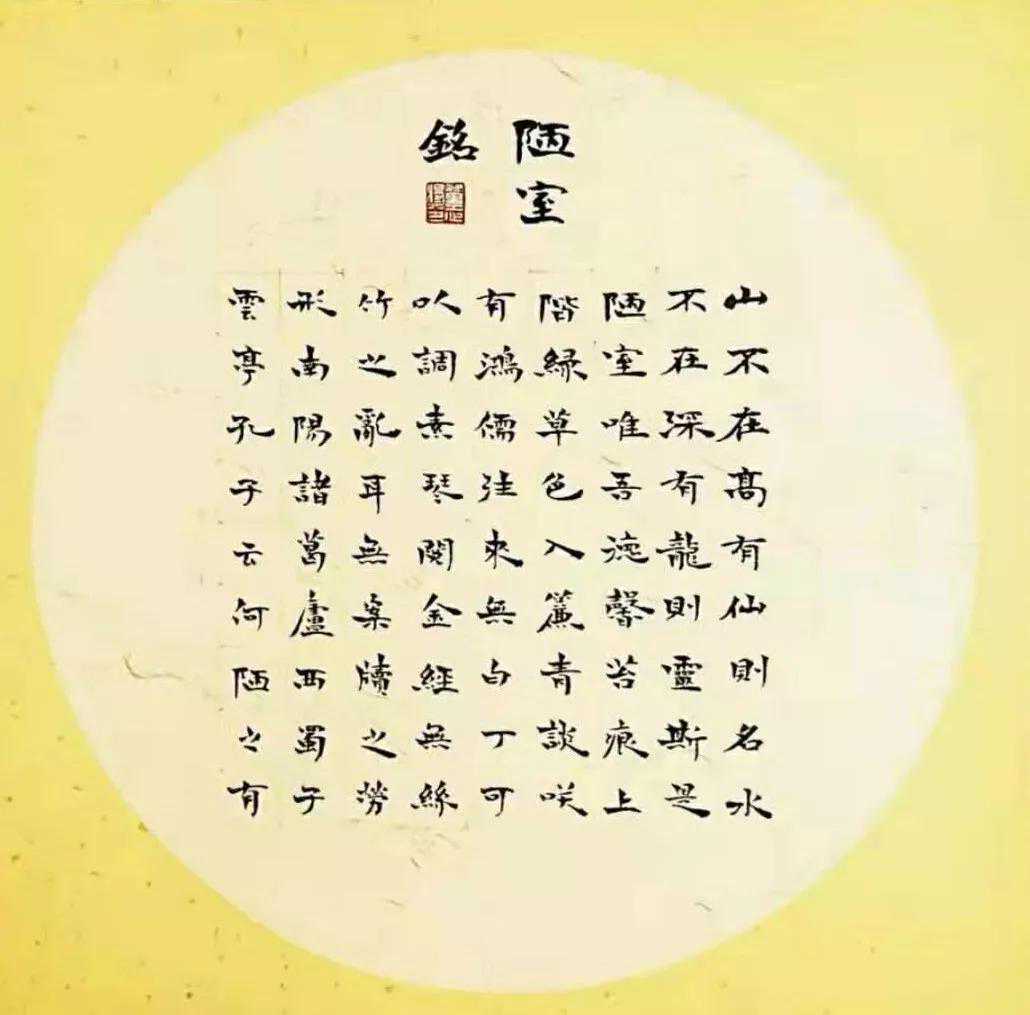 陋室
銘
山不在高有仙則名水
不在深有龍則靈斯是
陋室唯吾德馨苔痕上
階緑草色入簾青談咲
有鴻儒往來無白丁可
以調素琴閱金經無絲
竹之亂耳無案牘之勞
形南陽諸葛廬西蜀子
雲亭孔子云何陋之有